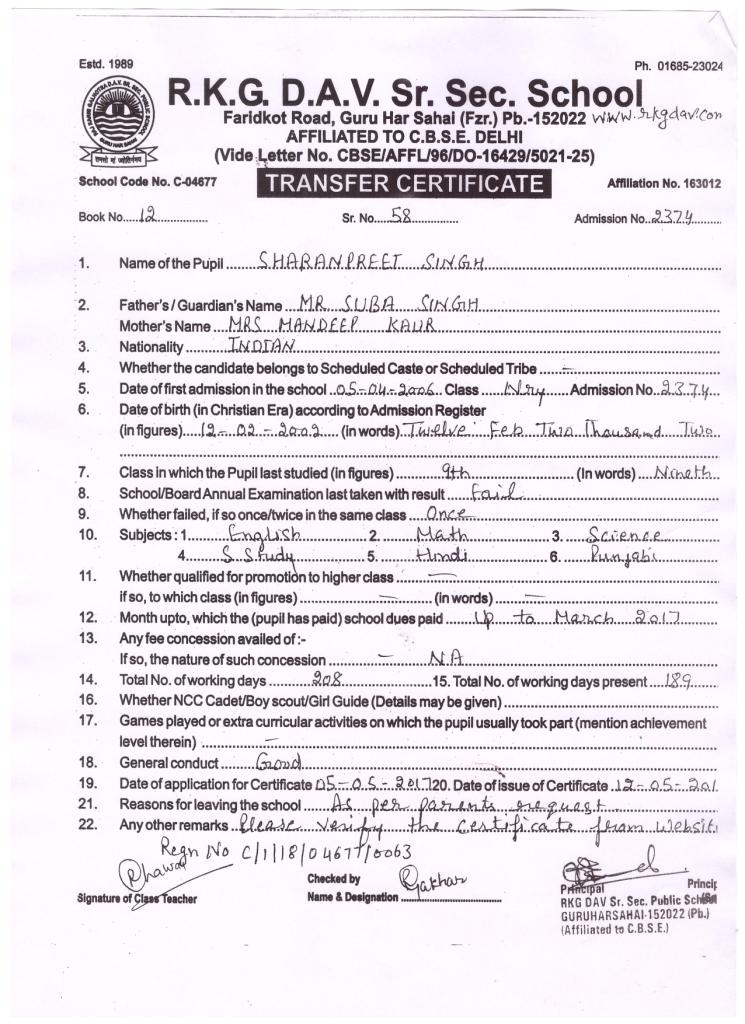 Estd. 1989
Ph. 01685-23024
R.K.G. D.A.V. Sr. Sec. School
Faridkot Road, Guru Har Sahai (Fzr.) Pb.-152022 www.rkgdav.com
AFFILIATED TO C.B.S.E. DELHI
(Vide Letter No. CBSE/AFFL/96/DO-16429/5021-25)
School Code No. C-04677 TRANSFER CERTIFICATE Affiliation No. 163012
Book No.....12.................. Sr. No.....58............... Admission No..2374.......
1. Name of the Pupil ........SHARANPREET SINGH
2. Father's / Guardian's Name ...MR SUBA SINGH
Mother's Name ...MRS MANDEEP KAUR
3. Nationality ............INDIAN
4. Whether the candidate belongs to Scheduled Caste or Scheduled Tribe ......—
5. Date of first admission in the school ..05-04-2006.. Class ......Nry...... Admission No..2374
6. Date of birth (in Christian Era) according to Admission Register
(in figures)....12-02-2002.... (in words) Twelve Feb Two Thousand Two
7. Class in which the Pupil last studied (in figures) ............9th............ (In words) ..Nineth
8. School/Board Annual Examination last taken with result .....Fail
9. Whether failed, if so once/twice in the same class ....Once
10. Subjects : 1.........English......... 2. .......Math....... 3. ......Science
4........S. Study........ 5. .......Hindi....... 6. ......Punjabi
11. Whether qualified for promotion to higher class ......—
if so, to which class (in figures) ............—............ (in words) ........—
12. Month upto, which the (pupil has paid) school dues paid .......Up to March 2017
13. Any fee concession availed of :-
If so, the nature of such concession .........— N.A
14. Total No. of working days .........208......... 15. Total No. of working days present ....189
16. Whether NCC Cadet/Boy scout/Girl Guide (Details may be given)
17. Games played or extra curricular activities on which the pupil usually took part (mention achievement
level therein) ..........—
18. General conduct ........Good
19. Date of application for Certificate 05-05-2017 20. Date of issue of Certificate .12-05-201
21. Reasons for leaving the school .....As per parents request
22. Any other remarks ..Please verify the certificate from Websit
Regn No C/1/18/04677/0063
Signature of Class Teacher
Checked by
Name & Designation
Principal Princip
RKG DAV Sr. Sec. Public School
GURUHARSAHAI-152022 (Pb.)
(Affiliated to C.B.S.E.)